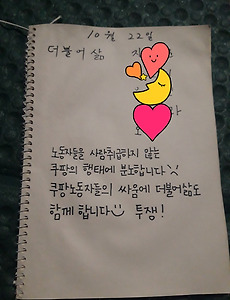 10월 22일
더불어삶
노동자들을 사람취급하지 않는
쿠팡의 행태에 분노합니다
쿠팡노동자들의 싸움에 더불어삶도
함께 합니다 투쟁!